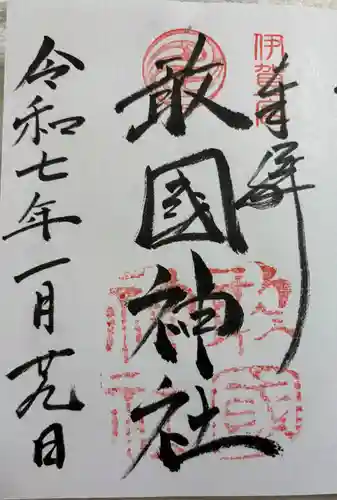 伊賀国
奉拝
敢國神社
敢國神社
令和七年一月廿九日